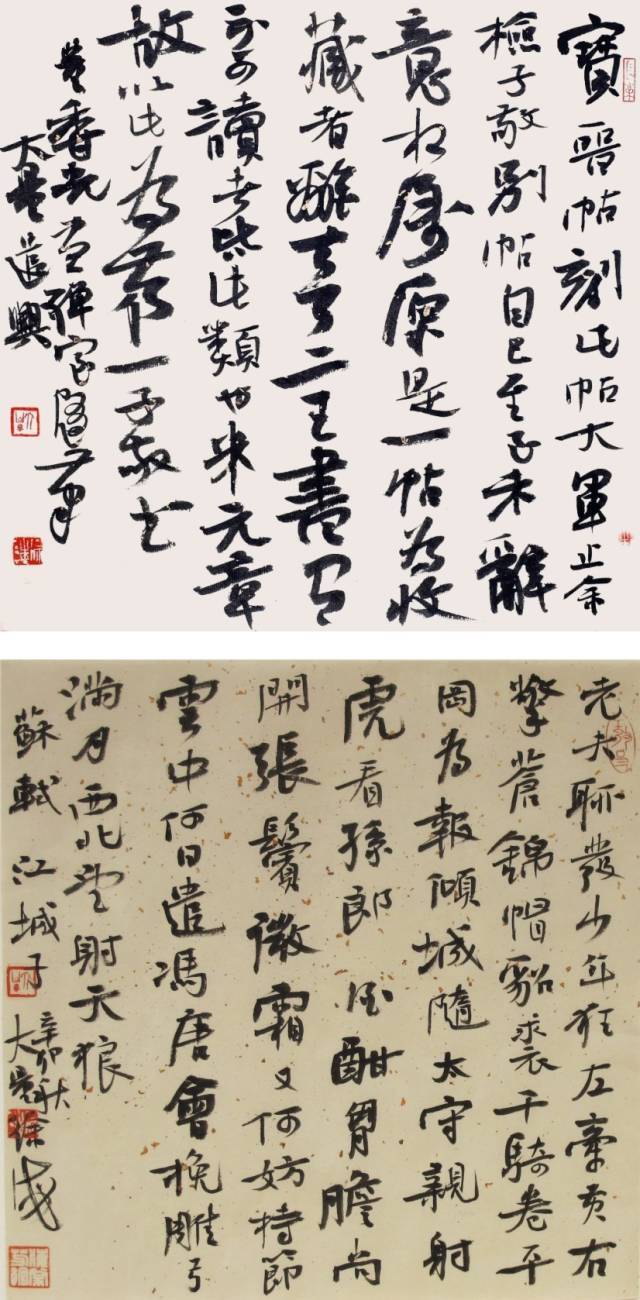 寶晉帖刻此帖大軍止余
檢子敬別帖自已至子未辭
意相屬原是一帖為收
藏者離去耳二王書有
不可讀者皆此類也米元章
故以此為第一子敬書
畫禪室隨筆
大岩遣興
老夫聊發少年狂左牽黃右
擎蒼錦帽貂裘千騎卷平
岡為報傾城隨太守親射
虎看孫郎酒酣胷膽尚
開張鬢微霜又何妨持節
雲中何日遣馮唐會挽雕弓
滿月西北望射天狼
蘇軾江城子
辛卯秋
大岩徐